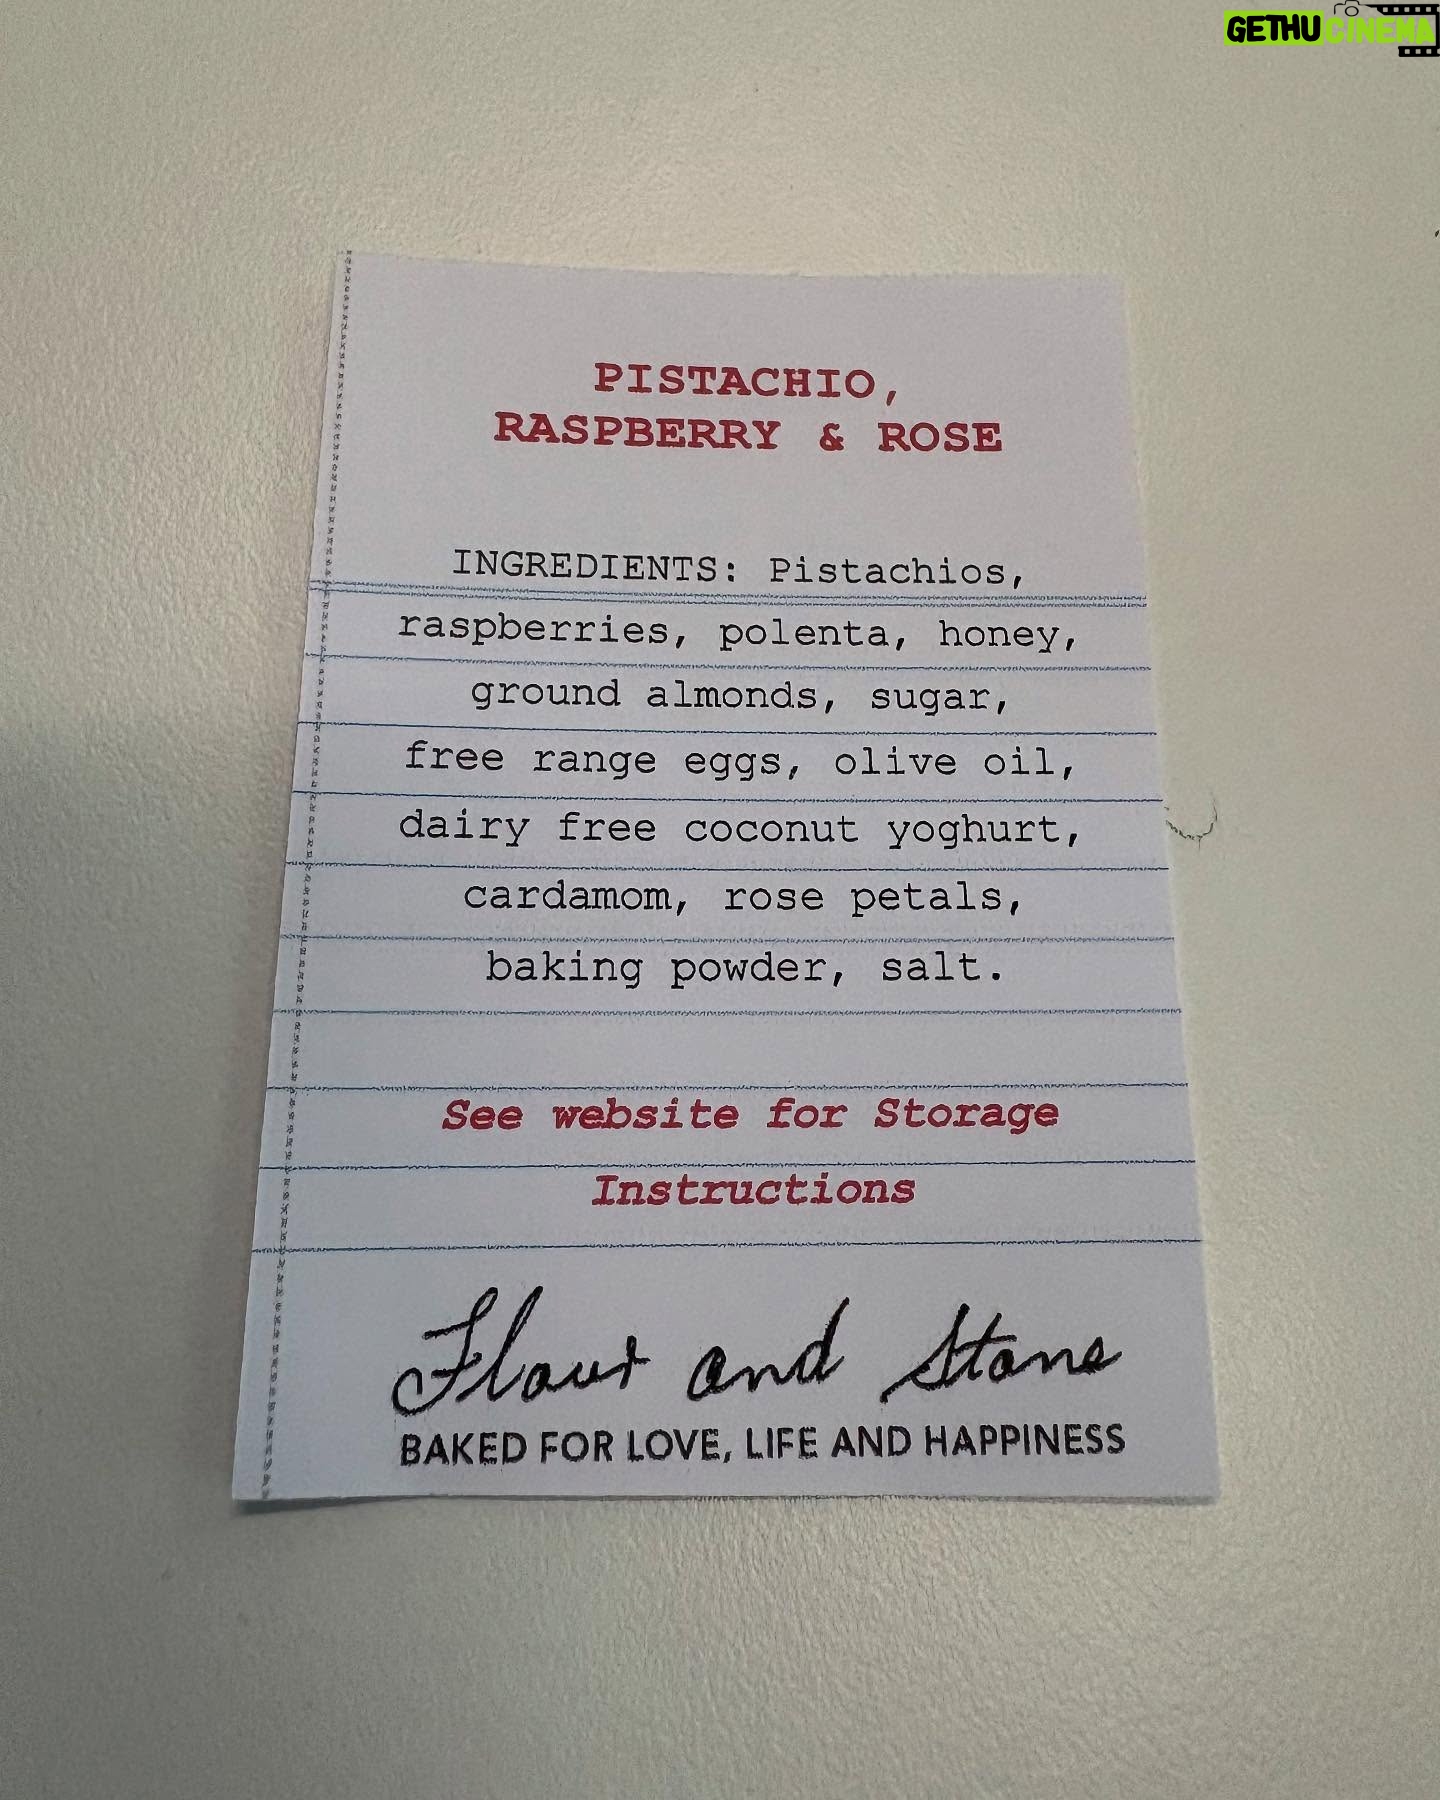 GETHUCINEMA
PISTACHIO,
RASPBERRY & ROSE
INGREDIENTS: Pistachios,
raspberries, polenta, honey,
ground almonds, sugar,
free range eggs, olive oil,
dairy free coconut yoghurt,
cardamom, rose petals,
baking powder, salt.
See website for Storage
Instructions
Flour and Stone
BAKED FOR LOVE, LIFE AND HAPPINESS